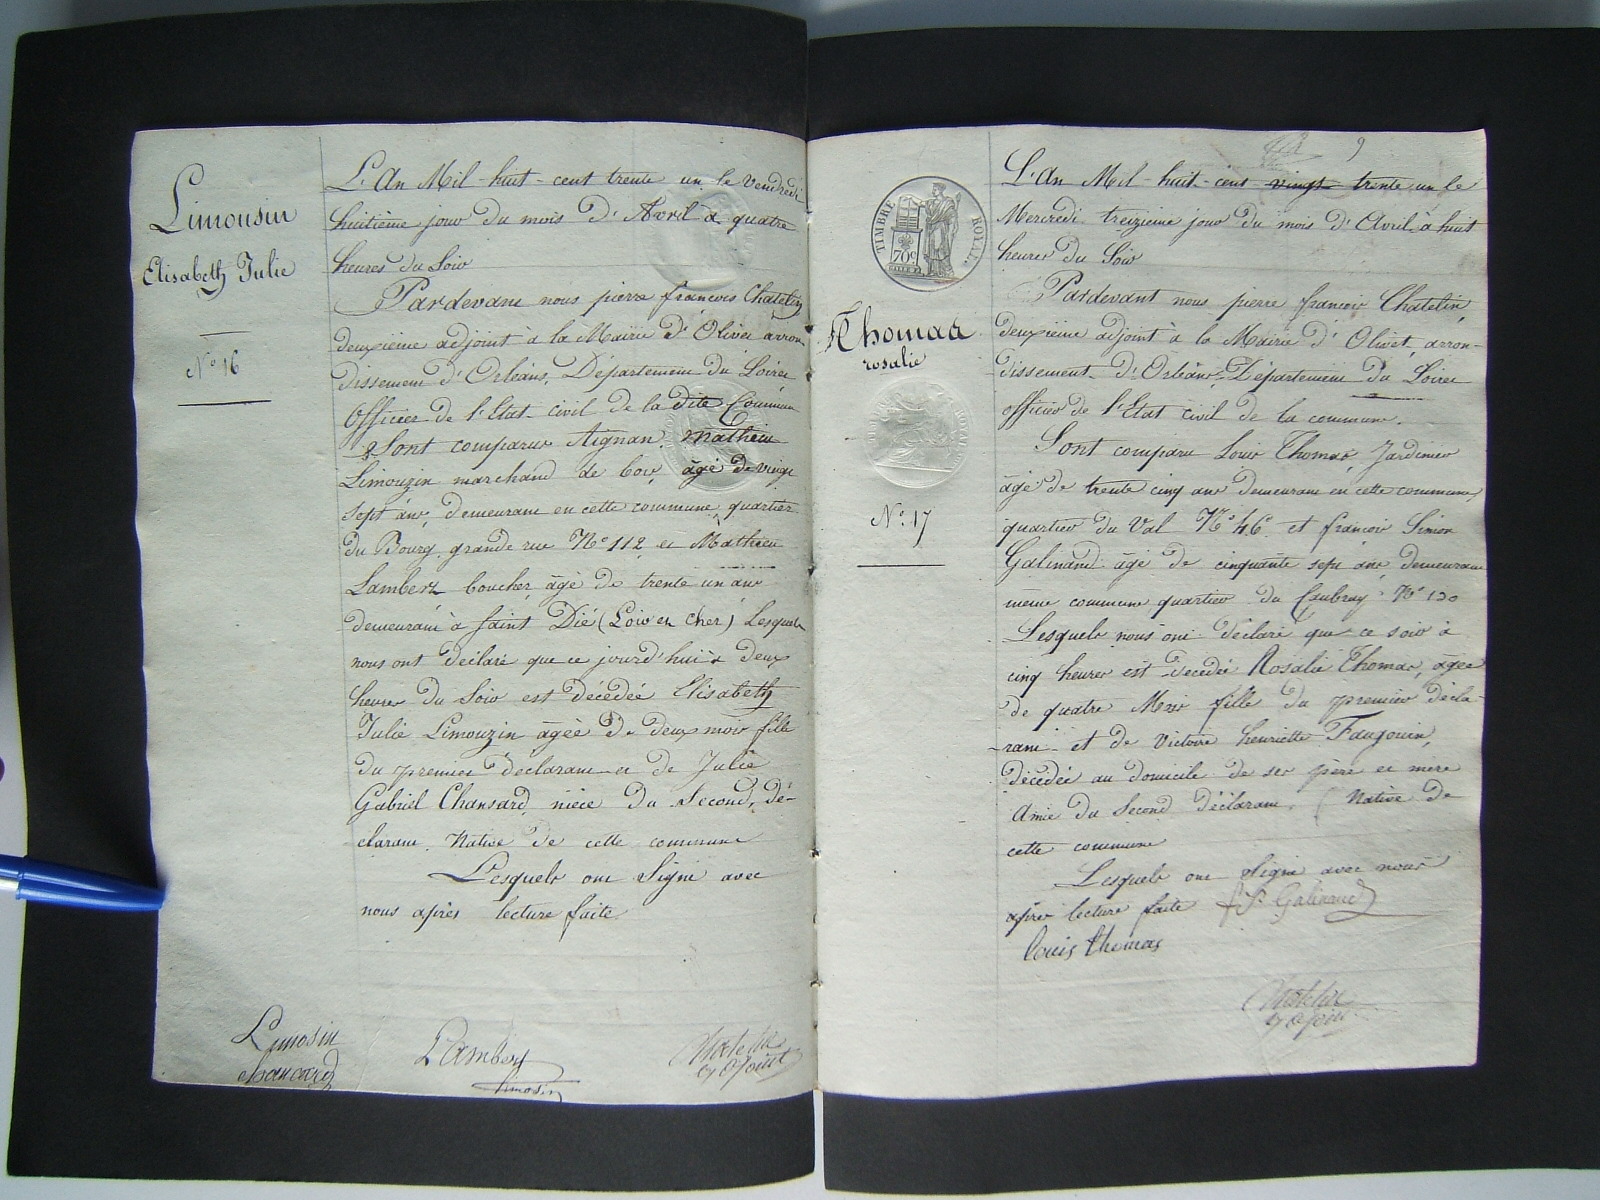 Limousin
Elisabeth Julie
N° 16
L'An Mil huit cent trente un le Vendredi
huitième jour du mois d'Avril à quatre
heures du Soir
Pardevant nous pierre françois Chatelin
deuxième adjoint à la Mairie d'Olivet arron
dissement d'Orléans, Département du Loiret
Officier de l'Etat civil de la dite Commune
Sont comparus Aignan Mathieu
Limouzin marchand de bois, âgé de vingt
sept ans, demeurant en cette commune, quartier
du Bourg, grande rue N° 112 et Mathieu
Lambert boucher âgé de trente un ans
demeurant à Saint Dié (Loir et Cher) Lesquels
nous ont déclaré que ce jourd'hui à deux
heures du Soir est décédée Elisabeth
Julie Limouzin agée de deux mois fille
du premier déclarant et de Julie
Gabriel Chansard, nièce du Second, dé-
clarant. Native de cette commune
Lesquels ont Signé avec
nous après lecture faite
Limosin
chancard
Lambert
Limosin
Chatelin
adjoint
9
TIMBRE ROYAL
70c
Thomas
rosalie
N° 17
L'An Mil huit cent vingt trente un le
Mercredi treizième jour du mois d'Avril à huit
heures du Soir
Pardevant nous pierre françois Chatelin,
deuxième adjoint à la Mairie d'Olivet, arron-
dissement d'Orléans, Département du Loiret
officier de l'Etat civil de la commune.
Sont comparu Louis Thomas, Jardinier
âgé de trente cinq ans demeurant en cette commune,
quartier du Val N° 46 et françois Simon
Galinand âgé de cinquante sept ans, demeurant
même commune, quartier du Caubray N° 130
Lesquels nous ont déclaré que ce soir à
cinq heures est décédée Rosalie Thomas, âgée
de quatre Mois fille du premier décla-
rant et de Victoire henriette Faugouin,
décédée au domicile de ses père et mère
Amie du Second déclarant. (Native de
cette commune
Lesquels ont Signé avec nous
après lecture faite f S Galinand
louis thomas
Chatelin
adjoint